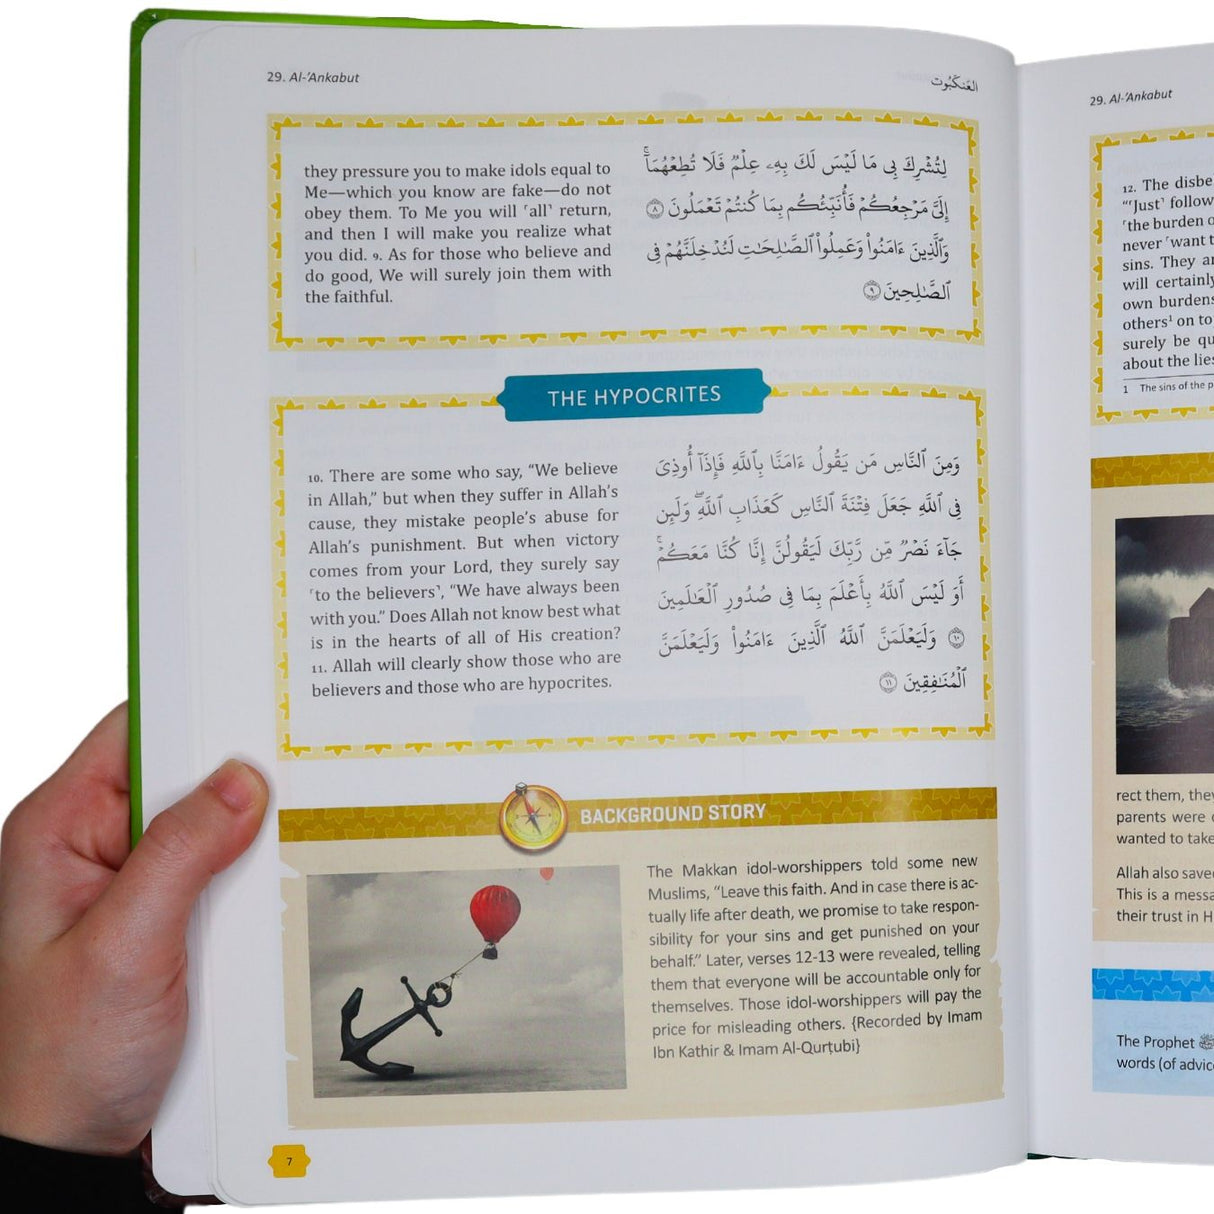 29. Al-'Ankabut
العَنكَبُوت
they pressure you to make idols equal to
Me—which you know are fake—do not
obey them. To Me you will ˹all˺ return,
and then I will make you realize what
you did. 9. As for those who believe and
do good, We will surely join them with
the faithful.
لِتُشْرِكَ بِى مَا لَيْسَ لَكَ بِهِۦ عِلْمٌ فَلَا تُطِعْهُمَآ ۚ
إِلَىَّ مَرْجِعُكُمْ فَأُنَبِّئُكُم بِمَا كُنتُمْ تَعْمَلُونَ ٨
وَٱلَّذِينَ ءَامَنُوا۟ وَعَمِلُوا۟ ٱلصَّـٰلِحَـٰتِ لَنُدْخِلَنَّهُمْ فِى
ٱلصَّـٰلِحِينَ ٩
THE HYPOCRITES
10. There are some who say, “We believe
in Allah,” but when they suffer in Allah’s
cause, they mistake people’s abuse for
Allah’s punishment. But when victory
comes from your Lord, they surely say
˹to the believers˺, “We have always been
with you.” Does Allah not know best what
is in the hearts of all of His creation?
11. Allah will clearly show those who are
believers and those who are hypocrites.
وَمِنَ ٱلنَّاسِ مَن يَقُولُ ءَامَنَّا بِٱللَّهِ فَإِذَآ أُوذِىَ
فِى ٱللَّهِ جَعَلَ فِتْنَةَ ٱلنَّاسِ كَعَذَابِ ٱللَّهِ ۖ وَلَئِن
جَآءَ نَصْرٌ مِّن رَّبِّكَ لَيَقُولُنَّ إِنَّا كُنَّا مَعَكُمْ ۚ
أَوَ لَيْسَ ٱللَّهُ بِأَعْلَمَ بِمَا فِى صُدُورِ ٱلْعَـٰلَمِينَ
١٠ وَلَيَعْلَمَنَّ ٱللَّهُ ٱلَّذِينَ ءَامَنُوا۟ وَلَيَعْلَمَنَّ
ٱلْمُنَـٰفِقِينَ ١١
BACKGROUND STORY
The Makkan idol-worshippers told some new
Muslims, “Leave this faith. And in case there is ac-
tually life after death, we promise to take respon-
sibility for your sins and get punished on your
behalf.” Later, verses 12-13 were revealed, telling
them that everyone will be accountable only for
themselves. Those idol-worshippers will pay the
price for misleading others. {Recorded by Imam
Ibn Kathir & Imam Al-Qurṭubi}
7
29. Al-'Ankabut
12. The disbe
“˹Just˺ follow
˹the burden o
never ˹want t
sins. They ar
will certainly
own burdens
others¹ on to
surely be qu
about the lies
1 The sins of the p
rect them, they
parents were
wanted to take
Allah also saved
This is a messa
their trust in H
The Prophet ﷺ
words (of advic